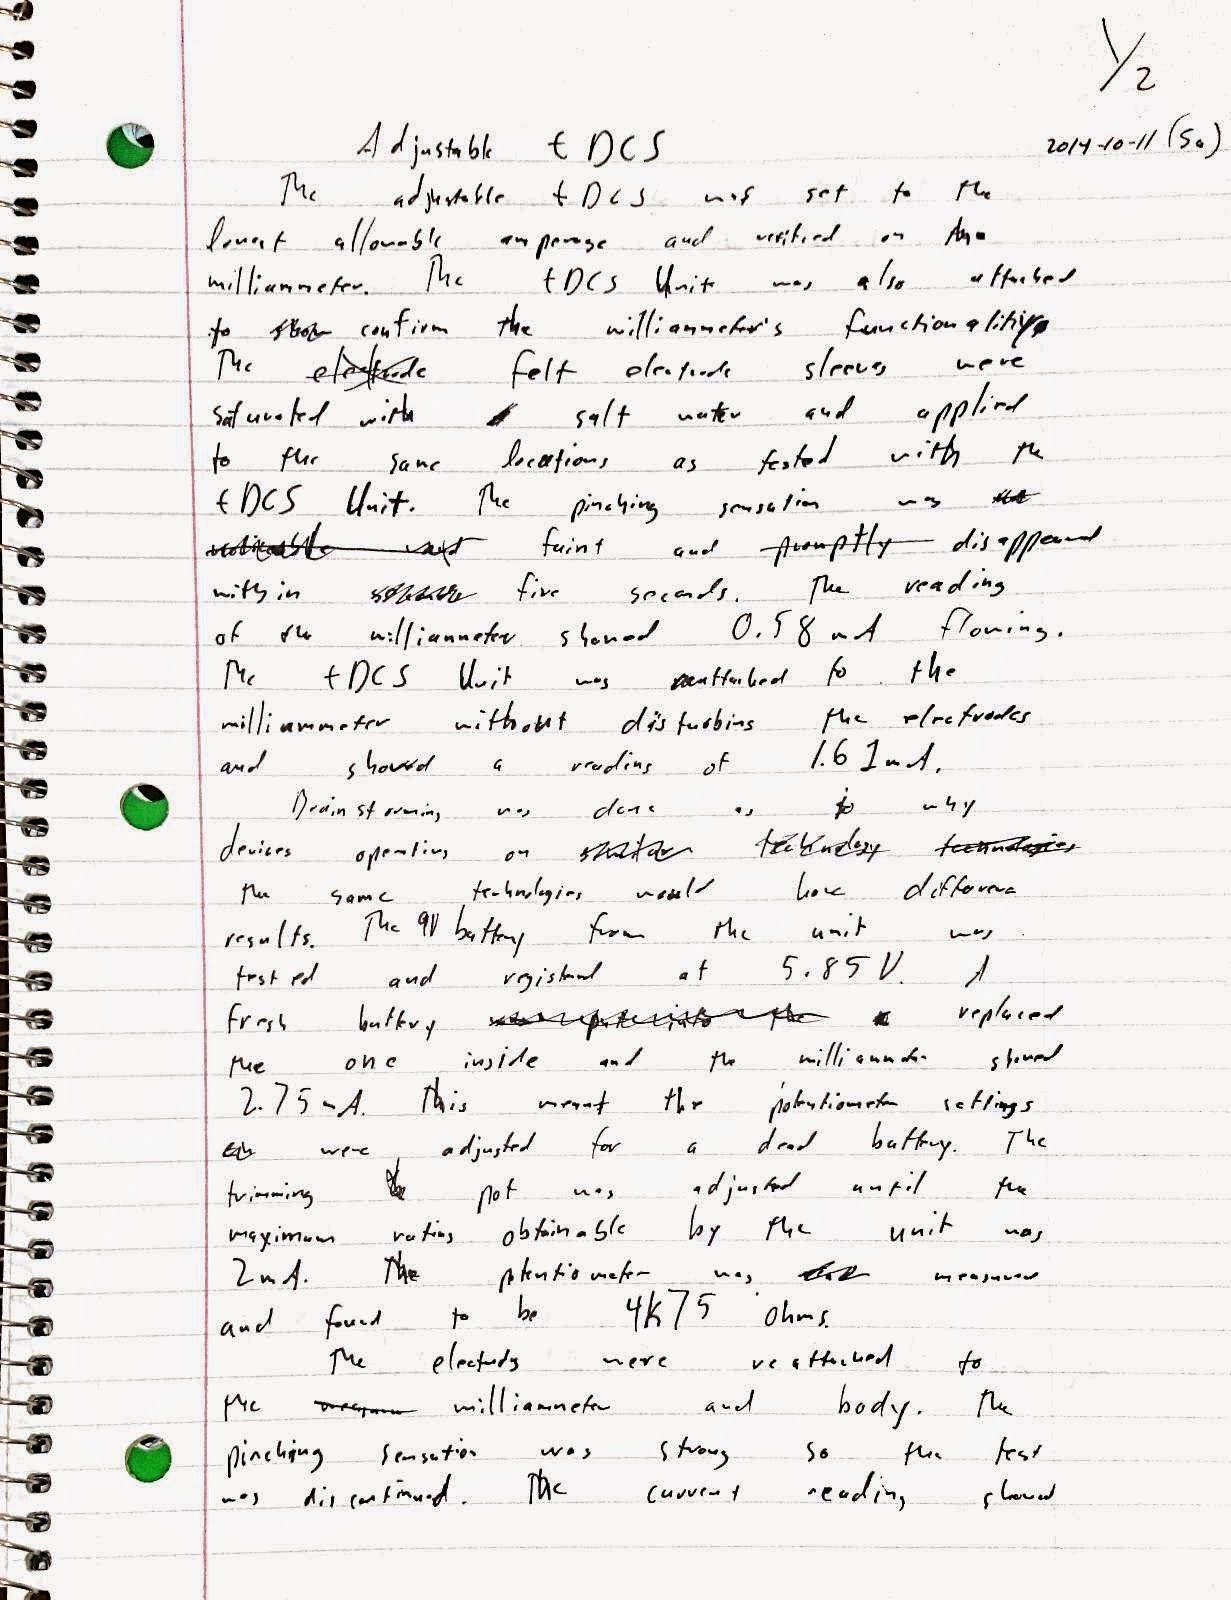 1/2
Adjustable tDCS
2014-10-11 (Sa)
The adjustable tDCS was set to the
lowest allowable amperage and verified on the
milliammeter. The tDCS Unit was also attached
to confirm the milliammeter's functionality.
The felt electrode sleeves were
saturated with salt water and applied
to the same locations as tested with the
tDCS Unit. The pinching sensation was
faint and promptly disappeared
within five seconds. The reading
of the milliammeter showed 0.58 mA flowing.
The tDCS Unit was attached to the
milliammeter without disturbing the electrodes
and showed a reading of 1.61 mA.
Brainstorming was done as to why
devices operating on
the same technologies would have different
results. The 9V battery from the unit was
tested and registered at 5.85 V. A
fresh battery replaced
the one inside and the milliammeter showed
2.75 mA. This meant the potentiometer settings
were adjusted for a dead battery. The
trimming pot was adjusted until the
maximum rating obtainable by the unit was
2mA. The potentiometer was measured
and found to be 4K75 ohms.
The electrodes were reattached to
the milliammeter and body. The
pinching sensation was strong so the test
was discontinued. The current reading showed